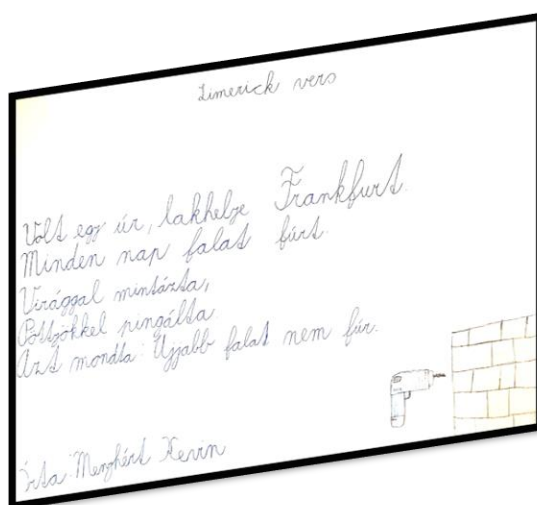 Limerick vers
Volt egy úr, lakhelye Frankfurt.
Minden nap falat fúrt.
Virággal mintázta,
Pöttyökkel pingálta.
Azt mondta: Újjabb falat nem fúr.
Írta: Menyhért Kevin